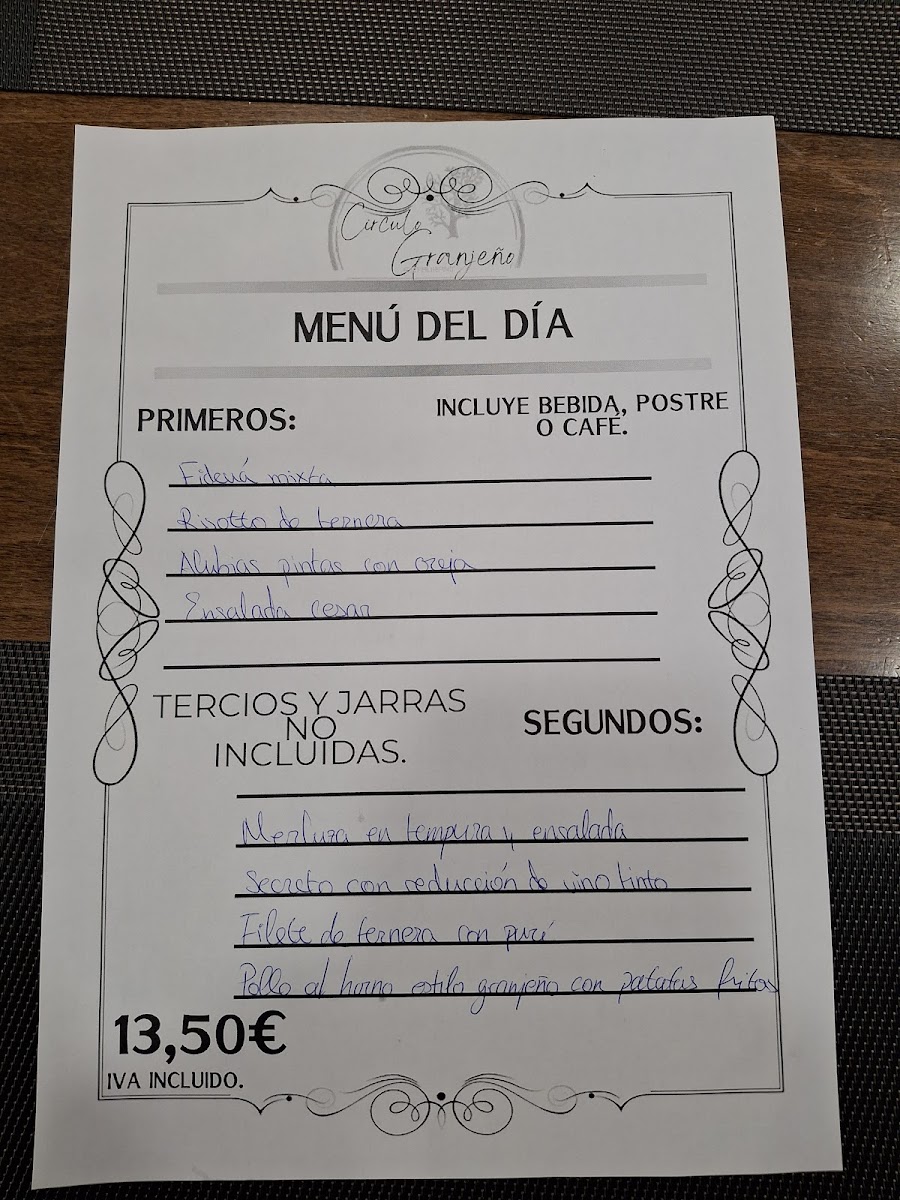 Círculo
Granjeño
MENÚ DEL DÍA
PRIMEROS:
INCLUYE BEBIDA, POSTRE
O CAFÉ.
Fideuá mixta
Risotto de ternera
Alubias pintas con oreja
Ensalada cesar
TERCIOS Y JARRAS
NO
INCLUIDAS.
SEGUNDOS:
Merluza en tempura y ensalada
Secreto con reducción de vino tinto
Filete de ternera con puré
Pollo al horno estilo granjeño con patatas fritas
13,50€
IVA INCLUIDO.